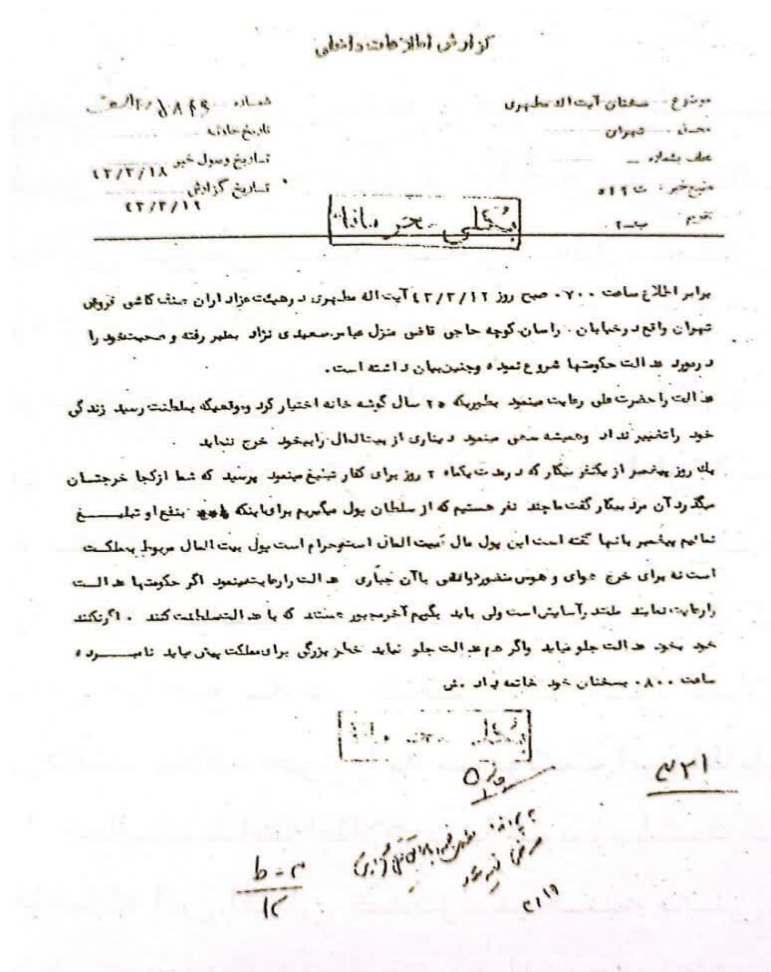 گزارش اطلاعات داخلی
موضوع سخنان آیت اله مطهری
محل تهران
عطف بشماره
منبع خبر
تقویم
شماره
تاریخ حادثه
تاریخ وصول خبر ۴۲/۳/۱۸
تاریخ گزارش ۴۲/۳/۱۹
بکلی
برابر اطلاع ساعت ۰۷۰۰ صبح روز ۴۲/۳/۱۲ آیت اله مطهری در هیئت عزاداران صنف کاشی فروش
تهران واقع در خیابان خراسان کوچه حاجی قاضی منزل عباس سعیدی نژاد بمنبر رفته و صحبت خود را
در مورد عدالت حکومتها شروع نموده و چنین بیان داشته است .
عدالت را حضرت علی رعایت مینمود بطوریکه ۲۵ سال گوشه خانه اختیار کرد و موقعیکه بسلطنت رسید زندگی
خود را تغییر نداد و همیشه سعی مینمود دیناری از بیت المال را بیخود خرج ننماید .
یك روز پیغمبر از یکنفر بیکار که در مدت یکماه ۲ روز برای کفار تبلیغ مینمود پرسید که شما از کجا خرجتان
میگذرد آن مرد بیکار گفت ما چند نفر هستیم که از سلطان پول میگیریم برای اینکه بنفع او تبلیغ
نمائیم پیغمبر بآنها گفته است این پول مال بیت المال است و حرام است پول بیت المال مربوط بمملکت
است نه برای خرج هوای و هوس با آن جباری عدالت را رعایت مینمود اگر حکومتها عدالت
را رعایت نمایند ملت در آسایش است ولی باید بگویم آخر مجبور هستند که با عدالت سلطنت کنند . اگر نکنند
خود بخود عدالت جلو میاید و اگر هم عدالت جلو نیاید خطر بزرگی برای مملکت پیش میاید نامبرده
ساعت ۰۸۰۰ بسخنان خود خاتمه داد
بکلی
۳۲۱